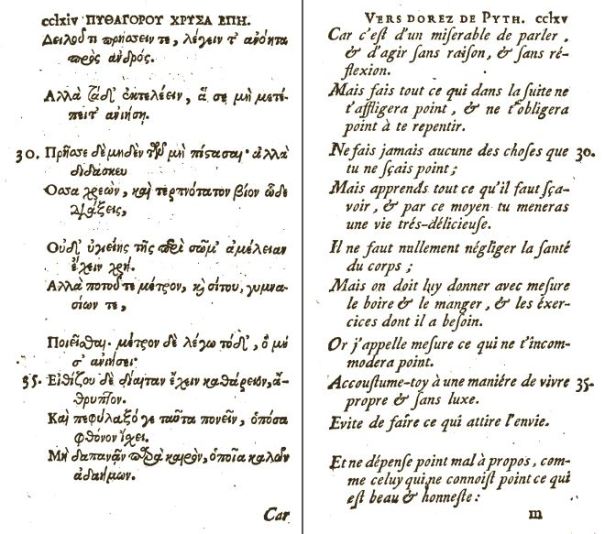 cclxiv ΠΥΘΑΓΟΡΟΥ ΧΡΥΣΑ ΕΠΗ.
Δειλοῦ τι πρήσσειν τε, λέγειν τ' ἀνόητα
πρὸς ἀνδρός.
Ἀλλὰ τάδ' ἐκτελέειν, ἅ σε μὴ μετέ-
πειτ' ἀνιήση.
30. Πρῆσσε δὲ μηδὲν τῶν μὴ πίστασαι· ἀλλὰ
διδάσκευ
Ὅσσα χρεὼν, καὶ τερπνότατον βίον ὧδε
διάξεις,
Οὐδ' ὑγιείης τῆς περὶ σῶμ' ἀμέλειαν
ἔχειν χρή.
Ἀλλὰ ποτοῦ τε μέτρον, καὶ σίτου, γυμνα-
σίων τε,
Ποιεῖσθαι. μέτρον δὲ λέγω τόδ', ὃ μή
σ' ἀνιήσει·
35. Εἰθίζου δὲ δίαιταν ἔχειν καθάρειον, ἄ-
θρυπτον.
Καὶ πεφύλαξό γε ταῦτα ποιεῖν, ὁπόσα
φθόνον ἴσχει.
Μὴ δαπανᾶν παρὰ καιρὸν, ὁποῖα καλῶν
ἀδαήμων.
Car
VERS DOREZ DE PYTH. cclxv
Car c'eſt d'un miſerable de parler,
& d'agir ſans raiſon, & ſans ré-
flexion.
Mais fais tout ce qui dans la ſuite ne
t'affligera point, & ne t'obligera
point à te repentir.
Ne fais jamais aucune des choſes que 30.
tu ne ſçais point;
Mais apprends tout ce qu'il faut ſça-
voir, & par ce moyen tu meneras
une vie trés-délicieuſe.
Il ne faut nullement négliger la ſanté
du corps;
Mais on doit luy donner avec meſure
le boire & le manger, & les éxer-
cices dont il a beſoin.
Or j'appelle meſure ce qui ne t'incom-
modera point.
Accouſtume-toy à une maniére de vivre 35.
propre & ſans luxe.
Evite de faire ce qui attire l'envie.
Et ne dépenſe point mal à propos, com-
me celuy qui ne connoiſt point ce qui
eſt beau & honneſte:
m